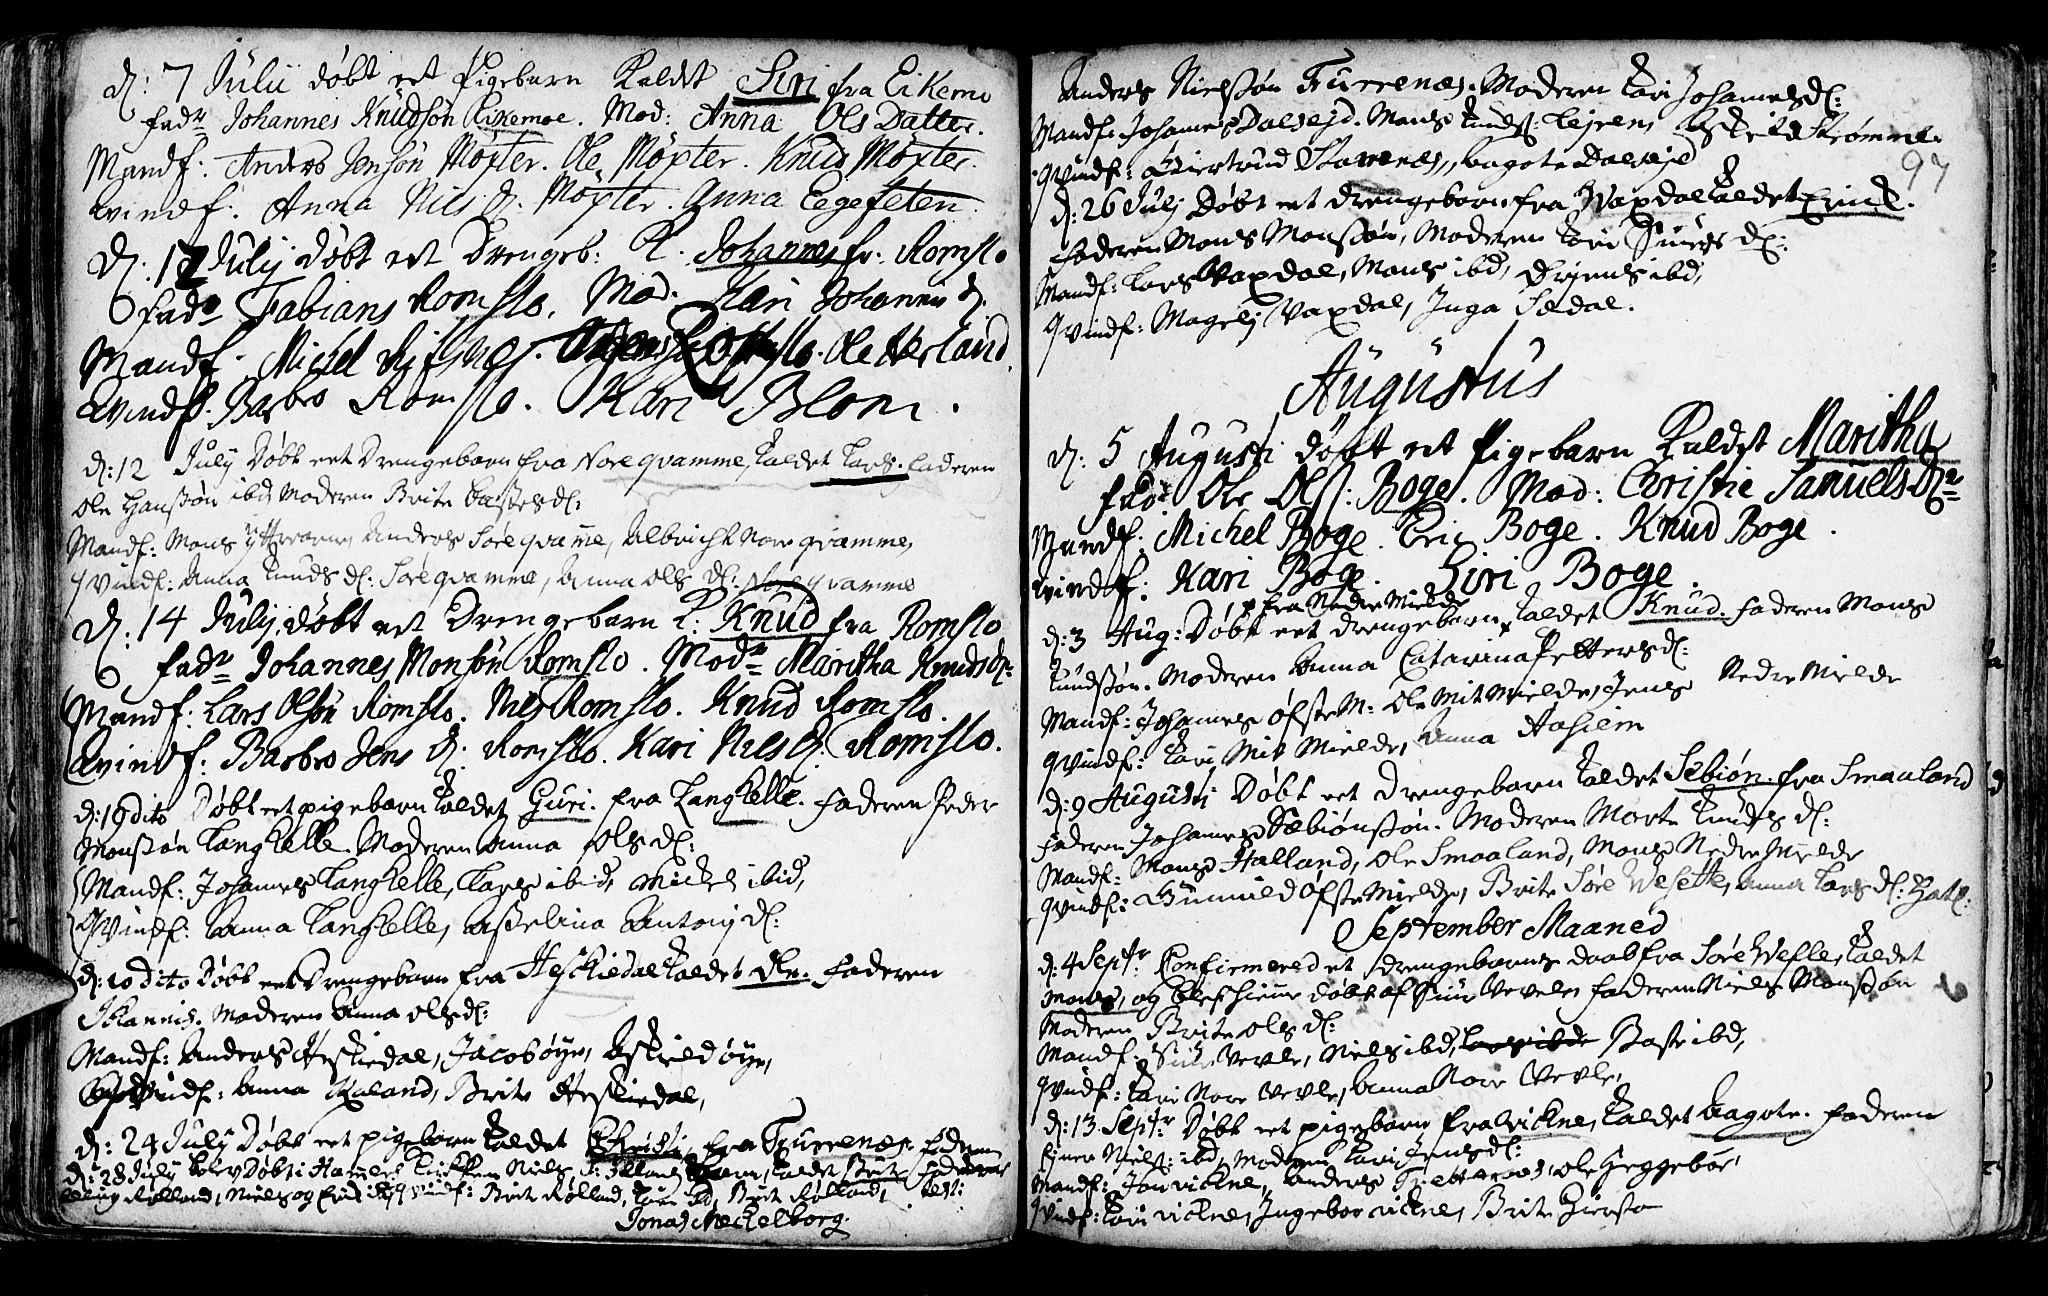 d: 7 Julii døbt eet Pigebarn Kaldet Siri fra Eikemo
fadr Johannes Knudsøn Eikemoe. Mod: Anna Ols Datter.
Mandf: Anders Jensøn Møxter. Ole Møxter. Knud Møxter.
Qvindf: Anna Nils D. Møxter. Anna Eegefeten.
D. 12 Julij døbt eet Drengeb: K. Johannes fr: Romslo
fadr Fabians Romslo, Mod. Kari Johannis D.
Mandf. Michel Romslo. Ole Herland.
Qvindf. Barbro Romslo. Kari Blom.
d: 12 July Døbt eet Drengebarn fra Nore qvamme, kaldet Lars. Faderen
Ole Hanssøn ibd Moderen Brite Bastesd:
Mandf: Mons Anders Søre qvame, Albricht Nore qvamme,
Qvindf: Anna Knuds d: Søre qvamme, Anna Ols d: Nore qvamme
D. 14 July døbt eet Drengebarn K: Knud fra Romslo
fadr Johannes Monsøn Romslo. Modr Maritha Knuds D:
Mandf: Lars Olsøn Romslo. Niels Romslo. Knud Romslo.
Qvindf: Barbro Jens D. Romslo. Kari Nils D. Romslo.
d: 19 dito Døbt eet pigebarn kaldet Guri. fra Langhelle. Faderen Peder
Monssøn Langhelle. Moderen Anna Ols d:
Mandf: Johannes Langhelle, Lars ibid, Mickel ibid,
Qvindf: Anna Langhelle, Asselina Antonij d:
d: 20 Dito Døbt eet Drengebarn fra Heskiedal kaldet Ole. Faderen
Johannis. Moderen Anna Olsd:
Mandf: Anders Heskiedal, Jacob øye, Askield øye,
Qvindf: Anna Kaland, Brite Heskiedal,
d: 24 July Døbt eet pigebarn kaldet Christi fra Furrenes. Faderen
d: 28 July blev Døbt i Hammers Kirkken Niels kaldet Brite Faderens
Rølland, Niels og Erik Qvindf: Brite Rølland, Kari ibd, Brite Rølland, test:
Jonas Meckelborg.
Anders Nielssøn Furrenes. Moderen Kari Johannesd:
Mandf: Johannes Dalseid. Mons Knuds: Lejren, Askield Strømme.
97
Qvindf: Giertrud Starrenes, Aagote Dalseid
d: 26 July Døbt eet Drengebarn fra Waxdal kaldet Erick.
Faderen Mons Monssøn, Moderen Kari Siurs d:
Mandf: Lars Waxdal, Mons ibd, Ørjens ibd,
Qvindf: Magely Vaxdal, Inga Sædal.
Augustus
d. 5 Augusti døbt eet Pigebarn Kaldet Maritha
fadr. Ole Ols: Boge. Mod: Christie Samuels Dr
Mandf: Michel Boge. Eric Boge. Knud Boge.
Qvindf: Kari Boge. Siri Boge.
fra Nedre Mielde
d: 3 Aug: Døbt eet Drengebarn kaldet Knud. Faderen Mons
Knudssøn. Moderen Anna Catarina Pettersd:
Mandf: Johannes Øfste M: Ole Mit Mielde, Jens Nedre Mielde
Qvindf: Kari Mit Mielde, Anna Aasiem
d: 9 Augusti Døbt eet Drengebarn kaldet Sebiøn. fra Smaaland
Faderen Johannes Sæbiønssøn. Moderen Marte Knuds d:
Mandf: Mons Halland, Ole Smaaland, Mons Nedre Mielde
Qvindf: Gunnild Øfste Mielde, Brite Søre Wesette, Anna Lars d: Hatl:
September Maaned
d: 4 Septr Confirmered et drengebarns daab fra Søre Wefle, kaldet
Mons, og blef hiemme døbt af Siur Vevle, Faderen Niels Monssøn
Moderen Brite Ols d:
Mandf: Siur Vevle, Niels ibd, Baste ibd,
Qvindf: Kari Nore Vevle, Anna Nore Vevle,
d: 13 Septr Døbt eet pigebarn fra Vickne, kaldet Aagote. Faderen
Niels: ibd, Moderen Kari Jensd:
Mandf: Jon Vickne, Anders Trettenes, Ole Heggebøe,
Qvindf: Kari Vickne, Ingebor Vickne, Brite Hiersta